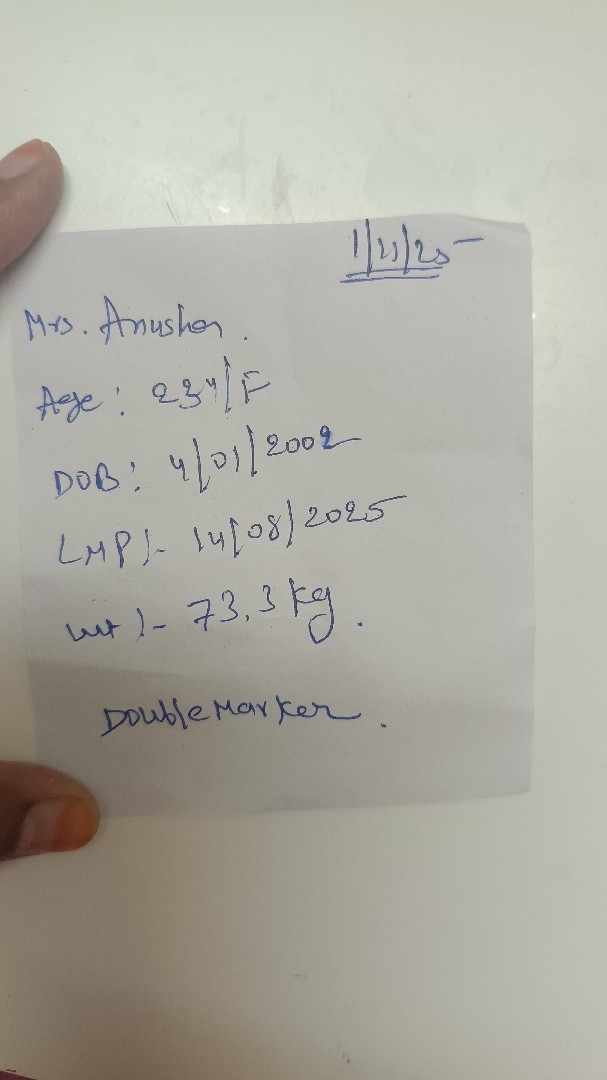 1/11/25
Mrs. Anusha.
Age: 23y/F
DOB: 4/01/2002
LMP:- 14/08/2025
wt:- 73.3 kg.
Double Marker.